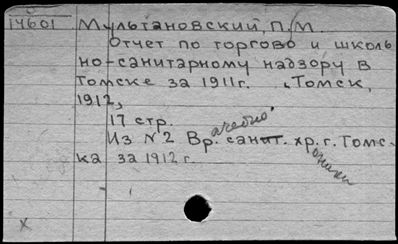 14601 Мультановский, П.М.
Отчет по торгово и школь
но-санитарному надзору в
Томске за 1911г. Томск,
1912,
17 стр.
Из N2 Врачебно санит. хроники г. Томс-
ка за 1912 г.
x